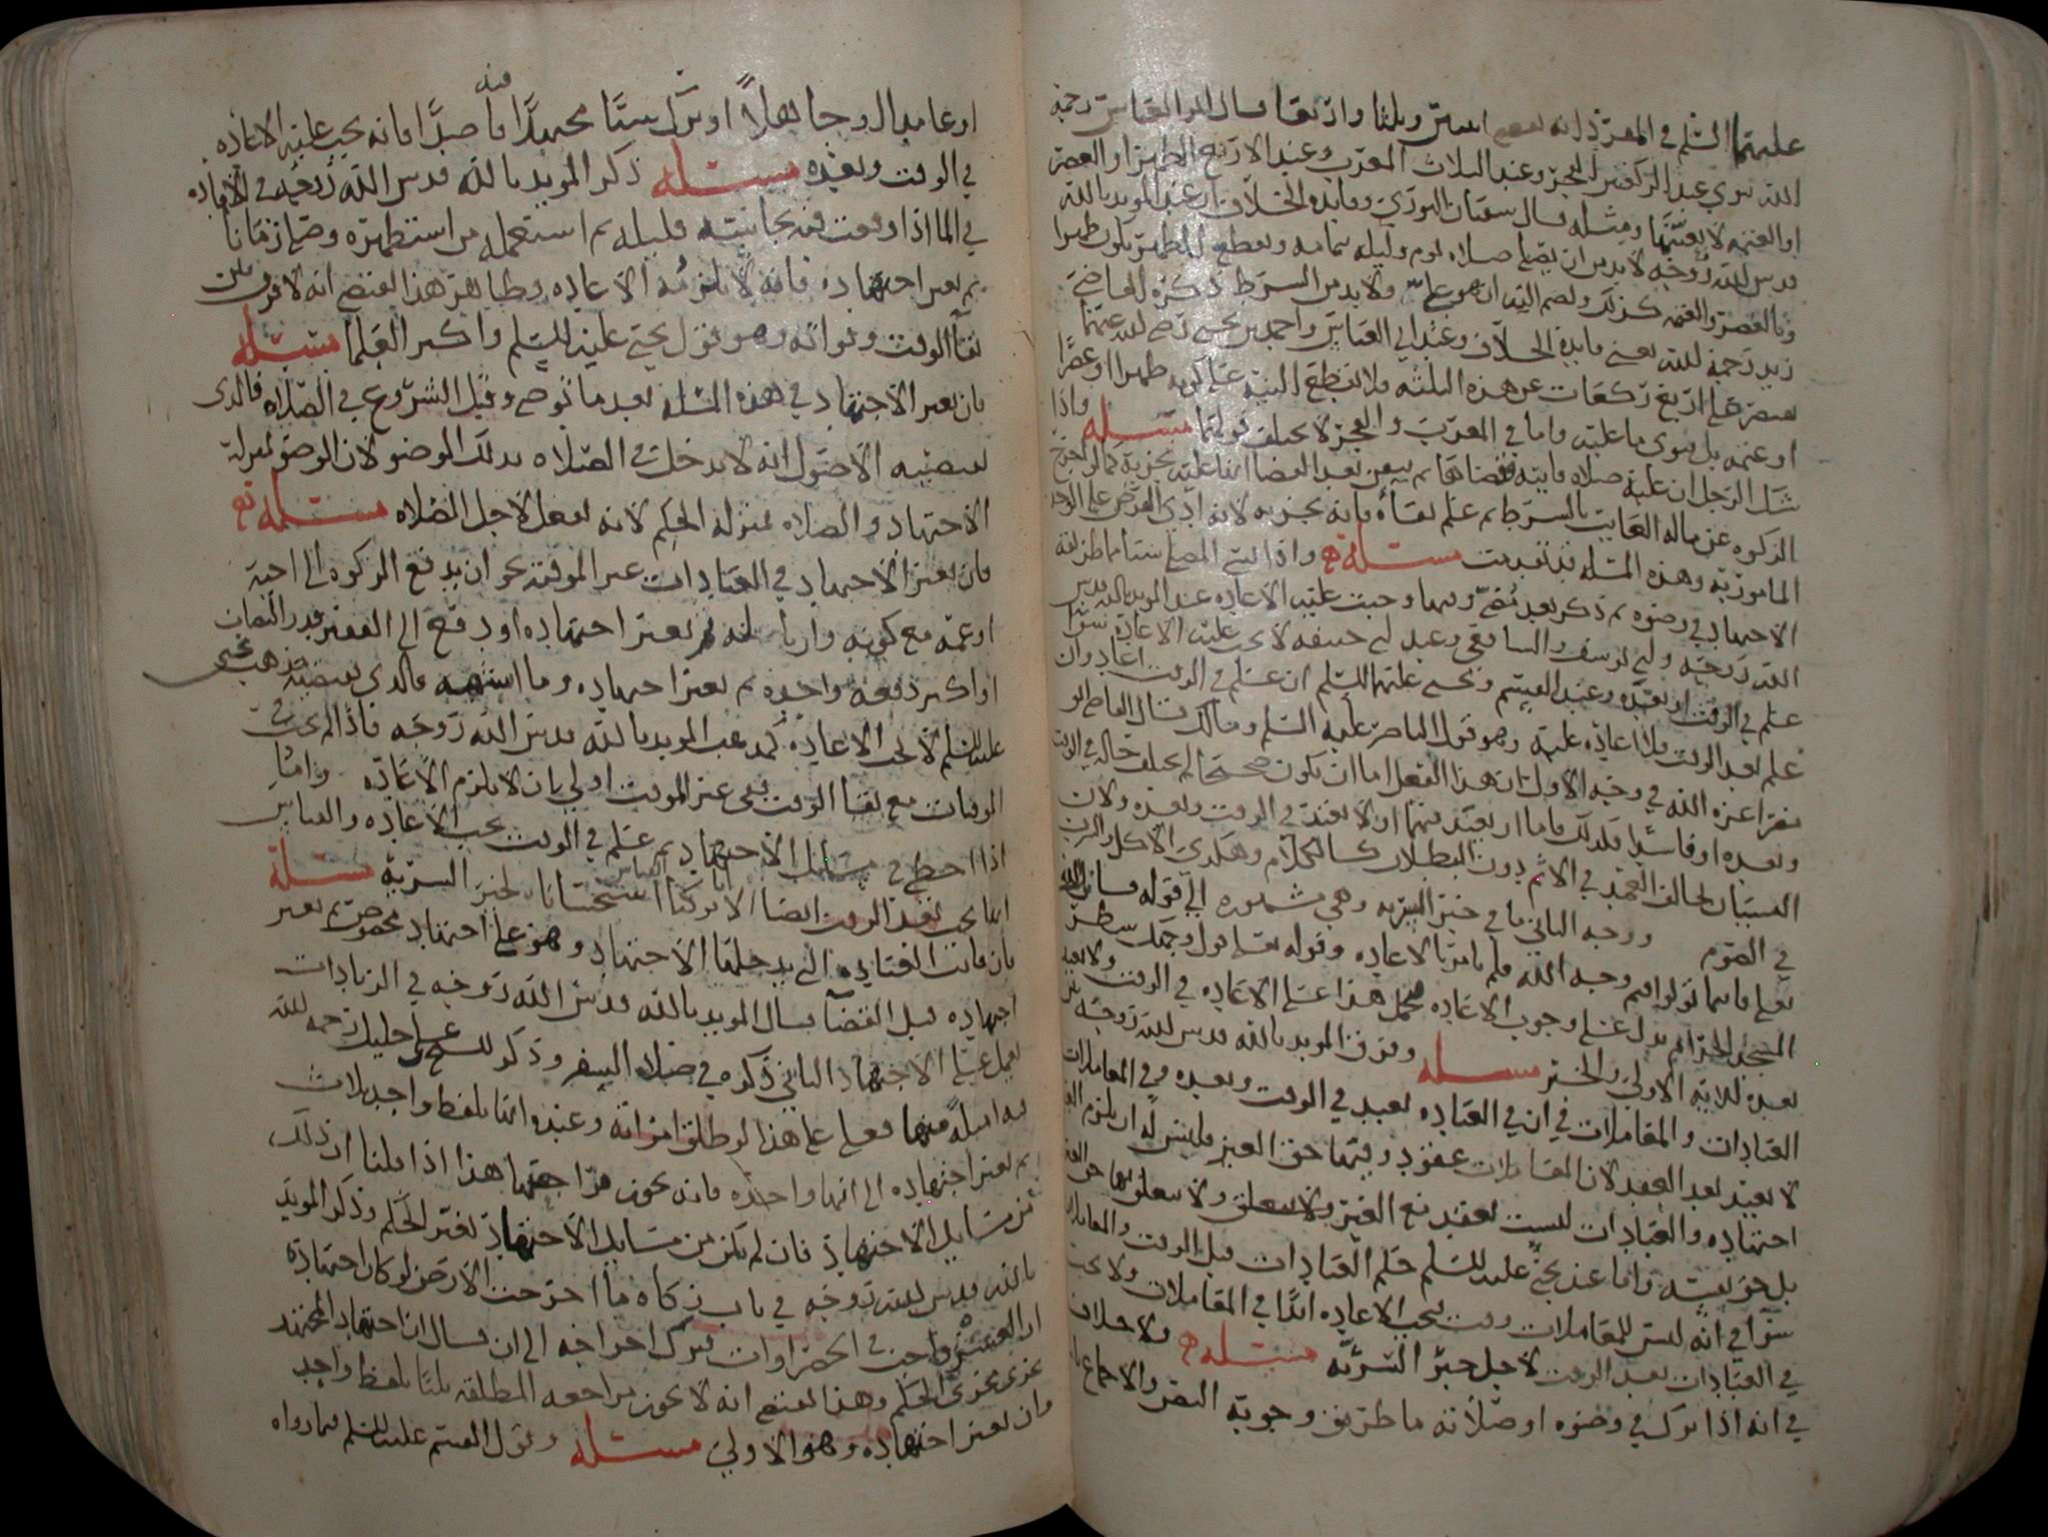 عليهما السلم في المفرد انه يصلي اثنتين وثلثا واربعا قال ابو العباس رحمة
الله ينوي عند الركعتين الفجر وعند الثلاث المغرب وعند الاربع الظهر او العصر
او العتمة لا بعينها ومثله قال سفيان الثوري وفائدة الخلاف ان عند المويد بالله
قدس الله روحه لا بد من ان يصلي صلاة يوم وليلة تمامه ويقطع الظهر بكون ظهرا
وبالعصر والعتمه كذلك ولا بد من الشرط ذكره القاضي
زيد رحمه الله يعني فايدة الخلاف وعند ابي العباس واحمد بن يحيى رضي الله عنهما
يقتصر على اربع ركعات عن هذه الثلثه ولا يقطع النية على كونه ظهرا او عصرا
او عتمه بل ينوي ما عليه واما في المغرب والفجر لا يختلف قولهما مسئله واذا
شك الرجل ان عليه صلاة فايته فقضاها ثم تيقن بعد القضا انها عليه تجزيه كما لو اخرج
الزكوه عن ماله الغايب بالشرط ثم علم بقاه فانه يجزيه لانه ادى الفرض على الوجه
المامور به وهذه المسله قد تقدمت مسئله واذا نسي المصلي شيئا ما طريقه
الاجتهاد في وضوه ثم ذكر بعد مضي وقتها وجبت عليه الاعاده عند المويد بالله قدس
الله روحه وابي يوسف والشافعي وعند ابي حنيفه لا يجب عليه الاعادة سوا
علم في الوقت او بعده وعند القسم ويحيى عليهما السلم ان علم في الوقت اعاد وان
علم بعد الوقت فلا اعاده عليه وهو قول الناصر عليه السلم ومالك قال القاضي ابو
مضر اعزه الله في وجه الاول ان هذا الفعل اما ان يكون صحيحا لم يختلف حاله في الوقت
وبعده او فاسدا فكذلك فاما ان يعتد بهما او لا يعتد في الوقت وبعده ولان
النسيان يخالف العمد في الاثم دون البطلان كالكلام وهكذي الاكل والشرب
في الصوم ووجه الثاني ما في خبر السرية وهي مشهوره الى قوله
تعلى فاينما تولوا فثم وجه الله فلم يامر بالاعاده وقوله تعلى فول وجهك شطر
المسجد الحرام يدل على وجوب الاعاده فحمل هذا على الاعاده في الوقت ولا يعيد
بعده للاية الاولى والخبر مسئله وفرق المويد بالله قدس الله روحه بين
العبادات والمعاملات في ان في العباده يعيد في الوقت وبعده وفي المعاملات
لا يعيد بعد العقد لان المعاملات عقود وفيها حق الغير فليس له ان يلزم الغير
اجتهاده والعبادات ليست بعقد مع الغير ولا يتعلق بها حق الغير
بل حق نفسه واما عند يحيى عليه السلم حكم العبادات قبل الوقت والمعاملات
سوا في انه ليس للمعاملات وقت فيجب الاعاده ابدا في المعاملات ولا يجب
في العبادات بعد الوقت لاجل خبر السرية مسئله ولا خلاف
في انه اذا ترك في وضوه او صلاته ما طريق وجوبه النص والاجماع
او عامدا او جاهلا او ترك شيئا مجتهدا فيه قاصدا فانه يجب عليه الاعاده
في الوقت وبعده مسئله ذكر المويد بالله قدس الله روحه في الافاده
في الما اذا وقعت فيه نجاسة قليله ثم استعمله من استطهره وصلى زمانا
ثم تغير اجتهاده فانه لا تلزمه الاعاده وظاهر هذا يقتضي انه لا فرق بين
بقا الوقت وفواته وهو قول يحيى عليه السلم واكثر العلما مسئله
فان تغير الاجتهاد في هذه المسله بعد ما توضى وقبل الشروع في الصلاه فالذي
يقتضيه الاصول انه لا يدخل في الصلاه بذلك الوضو لان الوضو بمنزلة
الاجتهاد والصلاه بمنزلة الحكم لانه يفعل لاجل الصلاه مسئله
فان تغير الاجتهاد في العبادات غير الموقته نحو ان يدفع الزكوه الى اخيه
او عمه مع كونه وارثا له ثم تغير اجتهاده او دفع الى الفقير قدر النصاب
او اكثر دفعة واحده ثم تغير اجتهاده وما اشبهه فالذي يقتضيه مذهب يحيى
عليه السلم لا تجب الاعاده كمذهب المويد بالله قدس الله روحه فاذا لم تجب في
الموقتات مع بقا الوقت ففي غير الموقت اولى بان لا يلزم الاعادة واما
اذا اخطى في مسايل الاجتهاد ثم علم في الوقت يجب الاعاده والقياس
انها تجب بعد الوقت ايضا الا انا تركنا القياس استحسانا لخبر السرية مسئله
فان فاتت العباده التي يدخلها الاجتهاد وهو على اجتهاد مخصوص ثم تغير
اجتهاده قبل القضا قال المويد بالله قدس الله روحه في الزيادات
يعمل على الاجتهاد الثاني ذكره في صلاة السفر وذكر الشيخ علي خليل رحمه الله
فيه امثلة منها فعلى هذا لو طلق امراته وعنده انها بلفظ واحد ثلاث
ثم تغير اجتهاده الى انها واحده فانه يجوز مراجعتها هذا اذا قلنا ان ذلك
من مسايل الاجتهاد فان لم تكن من مسايل الاجتهاد تغير الحكم وذكر المويد
بالله قدس الله روحه في باب زكاة ما اخرجت الارض لو كان اجتهاده
ان العشر واجب في الخضراوات فترك اخراجه الى ان قال ان اجتهاد المجتهد
يجري مجرى الحكم وهذا يقتضي انه لا يجوز مراجعة المطلقه ثلثا بلفظ واحد
وان تغير اجتهاده وهو الاولى مسئله وقول القسم عليه السلم فيما رواه